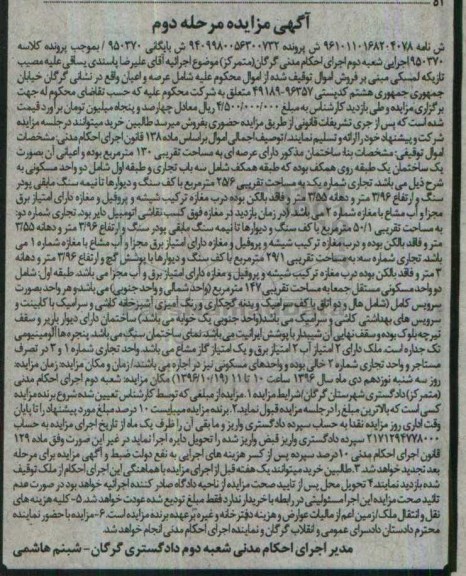 ۵۱
آگهی مزایده مرحله دوم
ش نامه ۹۶۱۰۱۱۰۱۶۸۲۰۴۰۷۸ ش پرونده ۹۴۰۹۹۸۰۰۵۶۳۰۰۷۳۲ ش بایگانی ۹۵۰۳۷۰ / بموجب پرونده کلاسه
۹۵۰۳۷۰ اجرایی شعبه دوم اجرای احکام مدنی گرگان(متمرکز) موضوع اجرائیه آقای علیرضا پاسندی یساقی علیه مصیب
تازیکه لمسکی مبنی بر فروش اموال توقیف شده از اموال محکوم علیه شامل عرصه و اعیان واقع در نشانی گرگان خیابان
جمهوری جمهوری هشتم کدپستی ۹۶۳۵۷-۴۹۱۸۹ متعلق به شرکت محکوم علیه که حسب تقاضای محکوم له جهت
برگزاری مزایده و طی بازدید کارشناس به مبلغ ۴/۵۰۰/۰۰۰/۰۰۰ ریال معادل چهارصد و پنجاه میلیون تومان برآورد قیمت
شده است که پس از جری تشریفات قانونی از طریق مزایده حضوری بفروش میرسد طالبین خرید میتوانند در جلسه مزایده
شرکت و پیشنهاد خود را ارائه و تسلیم نمایند./توصیف اجمالی اموال بر اساس ماده ۱۳۸ قانون اجرای احکام مدنی: مشخصات
اموال توقیفی: مشخصات بنا: ساختمان مذکور دارای عرصه ای به مساحت تقریبی ۱۳۰ مترمربع بوده و اعیانی آن بصورت
یک ساختمان یک طبقه روی همکف بوده که طبقه همکف شامل سه باب تجاری و طبقه اول شامل دو واحد مسکونی به
شرح ذیل می باشد. تجاری شماره یک: به مساحت تقریبی ۲۵/۶ مترمربع با کف سنگ و دیوارها تا نیمه سنگ مابقی پودر
سنگ و ارتفاع ۳/۹۶ متر و دهانه ۳/۵۵ متر و فاقد بالکن بوده درب مغازه ترکیب شیشه و پروفیل و مغازه دارای امتیاز برق
مجزا و آب مشاع با مغازه شماره ۲ می باشد (در زمان بازدید در مغازه فوق کسب نقاشی اتومبیل دایر بود. تجاری شماره دو:
به مساحت تقریبی ۵۰/۱ مترمربع با کف سنگ و دیوارها تا نیمه سنگ مابقی پودر سنگ و ارتفاع ۳/۹۶ متر و دهانه ۳/۵۵
متر و فاقد بالکن بوده و درب مغازه ترکیب شیشه و پروفیل و مغازه دارای امتیاز برق مجزا و آب مشاع با مغازه شماره ۱ می
باشد. تجاری شماره سه: به مساحت تقریبی ۲۹/۱ مترمربع با کف سنگ و دیوارها با پوشش گچ و ارتفاع ۳/۹۶ متر و دهانه
۳ متر و فاقد بالکن بوده درب مغازه ترکیب شیشه و پروفیل و مغازه دارای امتیاز برق و آب مجزا می باشد. طبقه اول: شامل
دو واحد مسکونی مستقل جمعا به مساحت تقریبی ۱۴۷ مترمربع (واحد شمالی و واحد جنوبی) می باشد و هر واحد بصورت
سرویس کامل (شامل هال و دو اتاق با کف سرامیک و بدنه گچکاری و رنگ آمیزی آشپزخانه کاشی و سرامیک با کابینت و
سرویس های بهداشتی کاشی و سرامیک می باشد(واحد جنوبی یک خوابه می باشد). ساختمان دارای دیوار باربر و سقف
تیرچه بلوک بوده و سقف نهایی آن شیبدار با پوشش ایرانیت می باشد نمای ساختمان سنگ می باشد. پنجره ها آلومینیومی
تک جداره است. ملک دارای ۲ امتیاز آب ۲ امتیاز برق و یک امتیاز گاز مشاع می باشد. واحد تجاری شماره ۱ و ۳ در تصرف
مستاجر و واحد تجاری شماره ۲ خالی بوده و واحدهای مسکونی نیز در اجاره می باشند./زمان و مکان مزایده: زمان مزایده:
روز سه شنبه نوزدهم دی ماه سال ۱۳۹۶ ساعت ۱۰ تا ۱۱ (۱۳۹۶/۱۰/۱۹) مکان مزایده: شعبه دوم اجرای احکام مدنی
(متمرکز) دادگستری شهرستان گرگان/شرایط مزایده ۱. مزایده از مبلغی که توسط کارشناس تعیین شده شروع برنده مزایده
کسی است که بالاترین مبلغ را در جلسه مزایده قبول نماید. ۲. برنده مزایده میبایست ۱۰ درصد مبلغ مورد پیشنهاد را تا پایان
وقت اداری روز مزایده نقدا به حساب سپرده دادگستری واریز و مابقی آن را ظرف یک ماه از تاریخ اجرای مزایده به حساب
۲۱۷۱۲۹۴۷۷۸۰۰۰ سپرده دادگستری واریز قبض واریز شده را تحویل دایره اجرا نماید در غیر این صورت وفق ماده ۱۲۹
قانون اجرای احکام مدنی ۱۰ درصد سپرده پس از کسر هزینه های اجرایی به نفع دولت ضبط و آگهی مزایده برای مرحله
بعد تجدید خواهد شد. ۳. طالبین خرید میتوانند یک هفته قبل از اجرای مزایده با هماهنگی این اجرای احکام از ملک توقیف
شده بازدید نمایند. ۴ تحویل محل پس از تایید صحت مزایده از ناحیه دادگاه صادر کننده اجرائیه خواهد بود در صورت عدم
تائید صحت مزایده این اجرا مسئولیتی در رابطه با خریدار ندارد فقط مبلغ تودیع شده عودت خواهد شد. ۵- کلیه هزینه های
نقل و انتقال ملک از مین اعم از مالیات عوارض و هزینه دفترخانه و غیره بر عهده برنده مزایده است. ۶- مزایده با حضور نماینده
محترم دادستان دادسرای عمومی و انقلاب گرگان و نماینده اجرای احکام مدنی انجام خواهد شد.
مدیر اجرای احکام مدنی شعبه دوم دادگستری گرگان- شبنم هاشمی